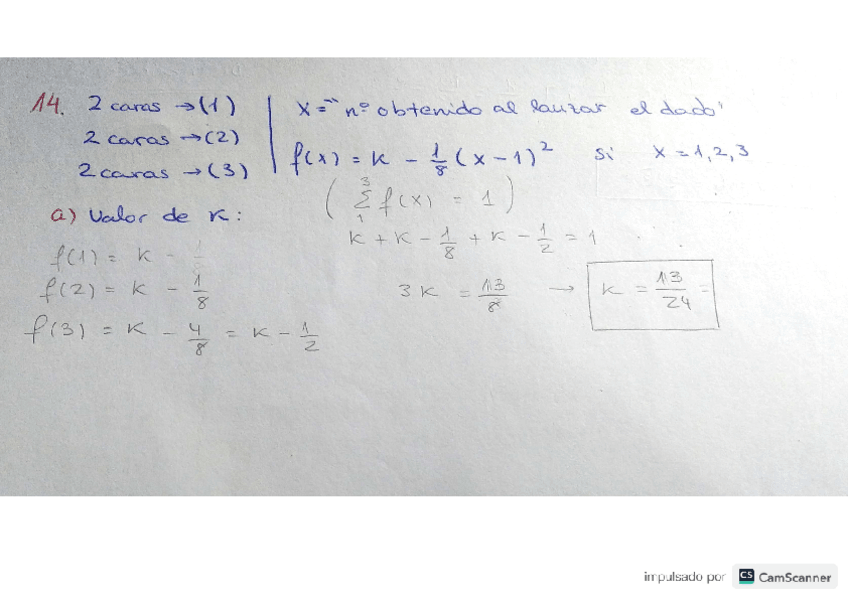 14. 2 caras → (1)
2 caras → (2)
2 caras → (3)
X = "nº obtenido al lanzar el dado"
f(x) = K - 1/8 (x - 1)² si X = 1, 2, 3
a) Valor de K:
( 3 Σ 1 f(x) = 1 )
f(1) = K -
f(2) = K - 1/8
f(3) = K - 4/8 = K - 1/2
K + K - 1/8 + K - 1/2 = 1
3K = 13/8 → K = 13/24 =
impulsado por CS CamScanner